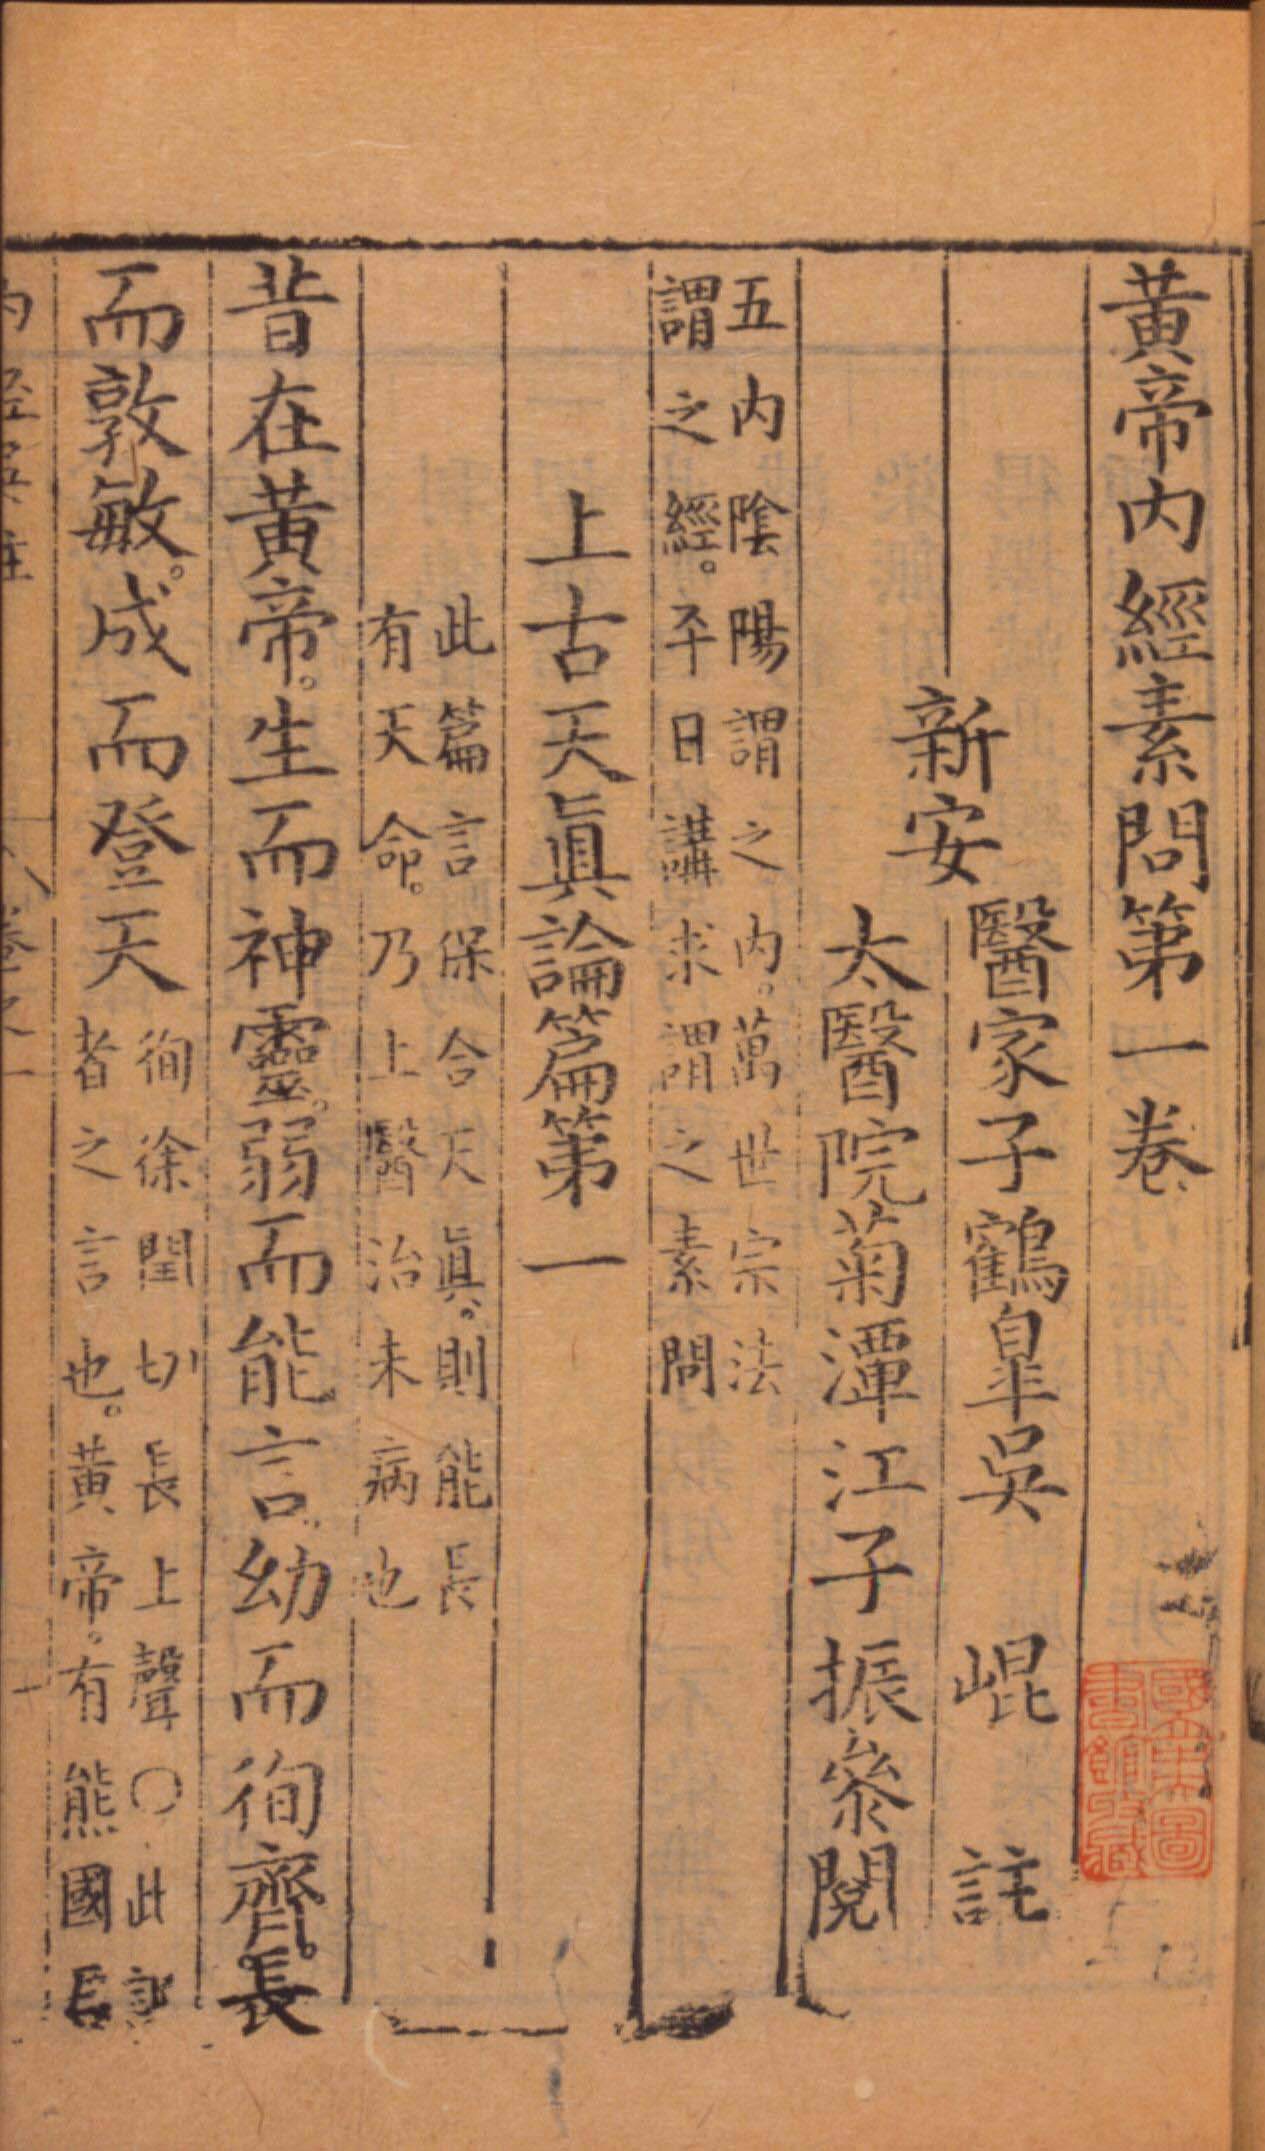 黃帝內經素問第一卷
新安
醫家子鶴皐吳　崐　註
太醫院菊潭江子振叅閱
五內陰陽謂之內。萬世宗法
謂之經。平日講求謂之素問
上古天眞論篇第一
此篇言保合天眞。則能長
有天命。乃上醫治未病也
昔在黃帝。生而神靈。弱而能言。幼而徇齊。長
而敦敏。成而登天
徇徐閏切長上聲○此記
者之言也。黃帝。有熊國君
國立中央圖
書館收藏
卷之一